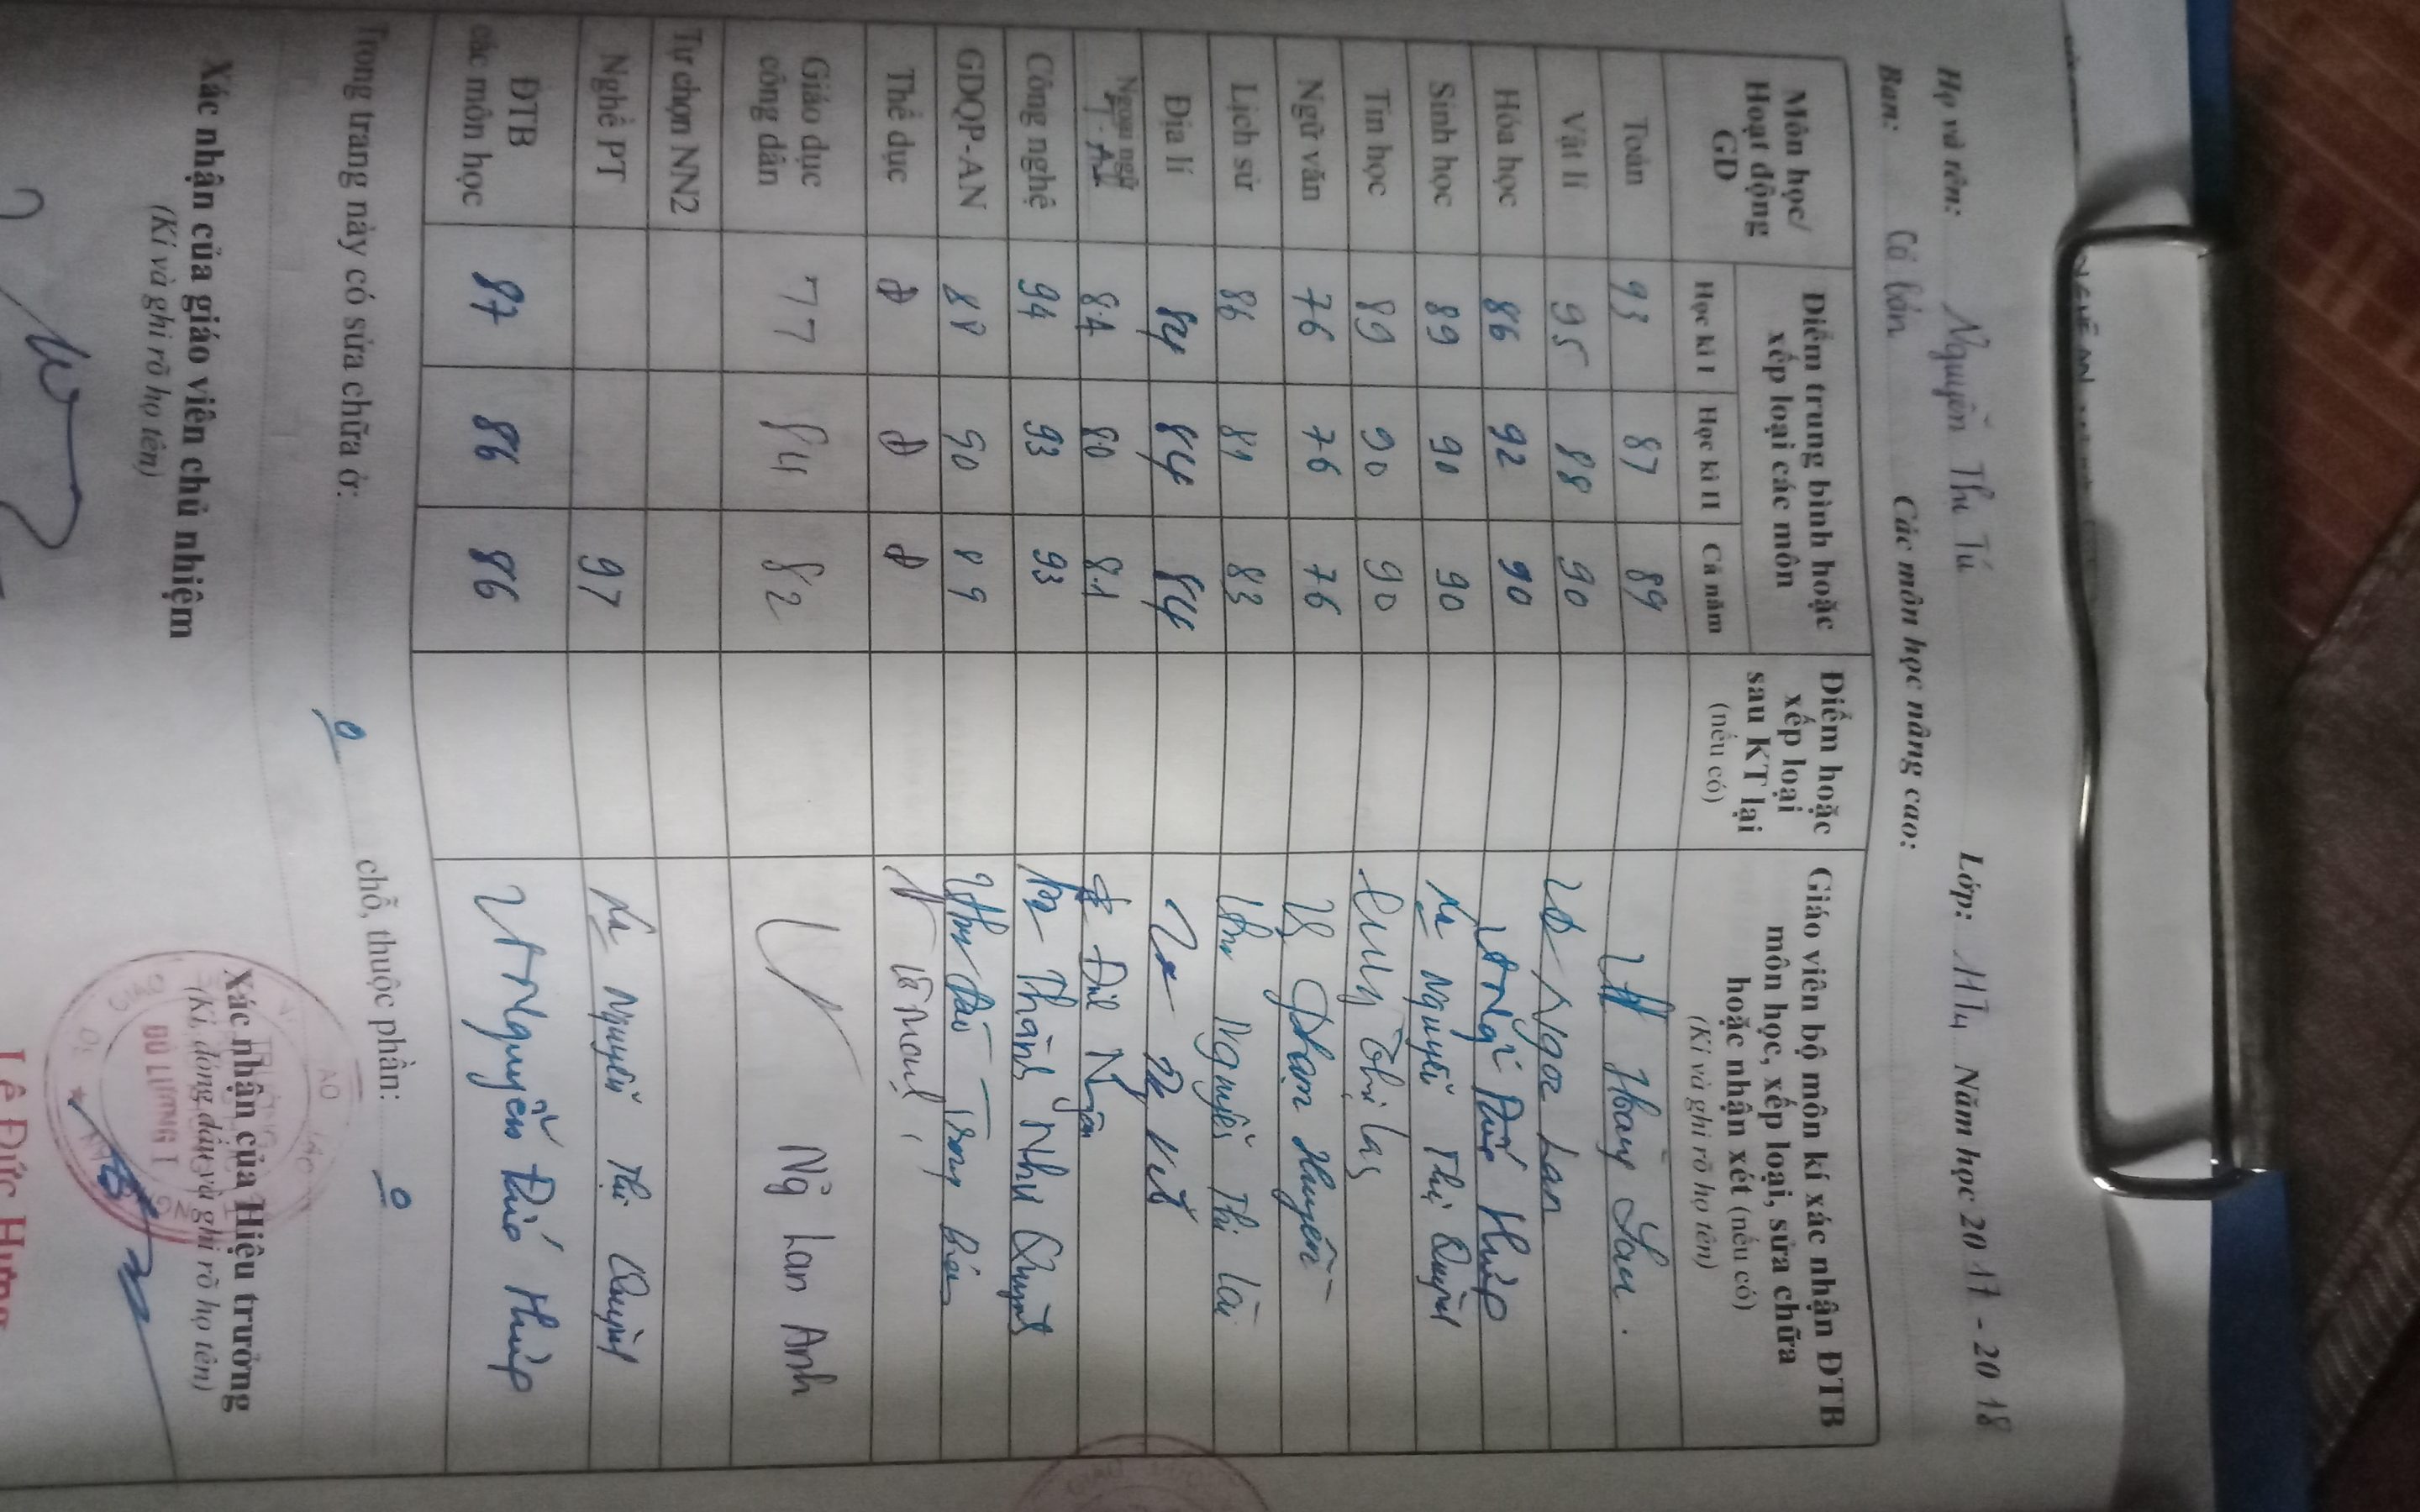 Họ và tên: Nguyễn Thị Tú Lớp: 11T4 Năm học 2017 - 2018
Ban: Cơ bản Các môn học nâng cao:
Môn học/ Hoạt động GD
Điểm trung bình hoặc xếp loại các môn
Học kì I Học kì II Cả năm
Điểm hoặc xếp loại sau KT lại (nếu có)
Giáo viên bộ môn kí xác nhận ĐTB môn học, xếp loại, sửa chữa hoặc nhận xét (nếu có)
(Kí và ghi rõ họ tên)
Toán 93 87 89 Hoàng
Vật lí 95 88 90 Ngọc Lan
Hóa học 86 92 90 Ng Đức Thiệp
Sinh học 89 90 90 Nguyễn Thị Quỳnh
Tin học 89 90 90 Thị
Ngữ văn 76 76 76 Phạm Huyền
Lịch sử 86 81 83 Nguyễn Thị
Địa lí 84 84 84
Ngoại ngữ T.A 8.4 8.0 8.1
Công nghệ 94 93 93 Thành Như Quỳnh
GDQP-AN 88 90 89
Thể dục Đ Đ Đ
Giáo dục công dân 77 84 82 Ng Lan Anh
Tự chọn NN2
Nghề PT 97 Nguyễn Thị Quỳnh
ĐTB các môn học 87 86 86 Nguyễn Đức Thiệp
Trong trang này có sửa chữa ở: 0 chỗ, thuộc phần: 0
Xác nhận của giáo viên chủ nhiệm
(Kí và ghi rõ họ tên)
Xác nhận của Hiệu trưởng
(Kí, đóng dấu và ghi rõ họ tên)
ĐÔ LƯƠNG I
Lê Đức Hưng